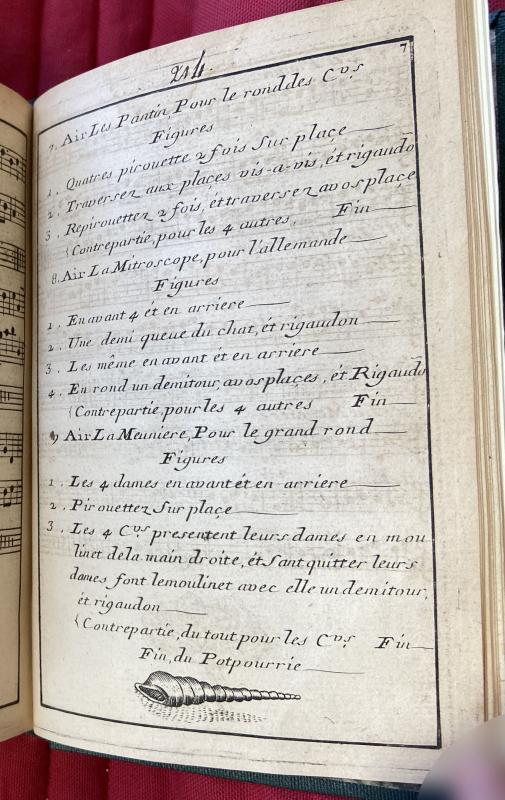 214.
7
7. Air Les Pantin, Pour le rond des Cvs
Figures
1. Quatres pirouette 2 fois Sur plaçe
2. Traversez aux places vis-a-vis, ét rigaudo
3. Repirouettez 2 fois, ét traversez avos plaçe
{Contrepartie, pour les 4 autres. Fin
8. Air La Mitroscope, pour l'allemande
Figures
1. En avant 4 ét en arriere
2. Une demi queue du chat, ét rigaudon
3. Les même en avant ét en arriere
4. En rond un demitour, avos plaçes, ét Rigaudo
{Contrepartie, pour les 4 autres Fin
9 Air La Meuniere, Pour le grand rond
Figures
1. Les 4 dames en avant ét en arriere
2. Pirouettez Sur plaçe
3. Les 4 Cvs presentent leurs dames en mou
linet dela main droite, ét Sant quitter leurs
dames font lemoulinet avec elle un demitour,
ét rigaudon
{Contrepartie, du tout pour les Cvs Fin
Fin, du Potpourrie